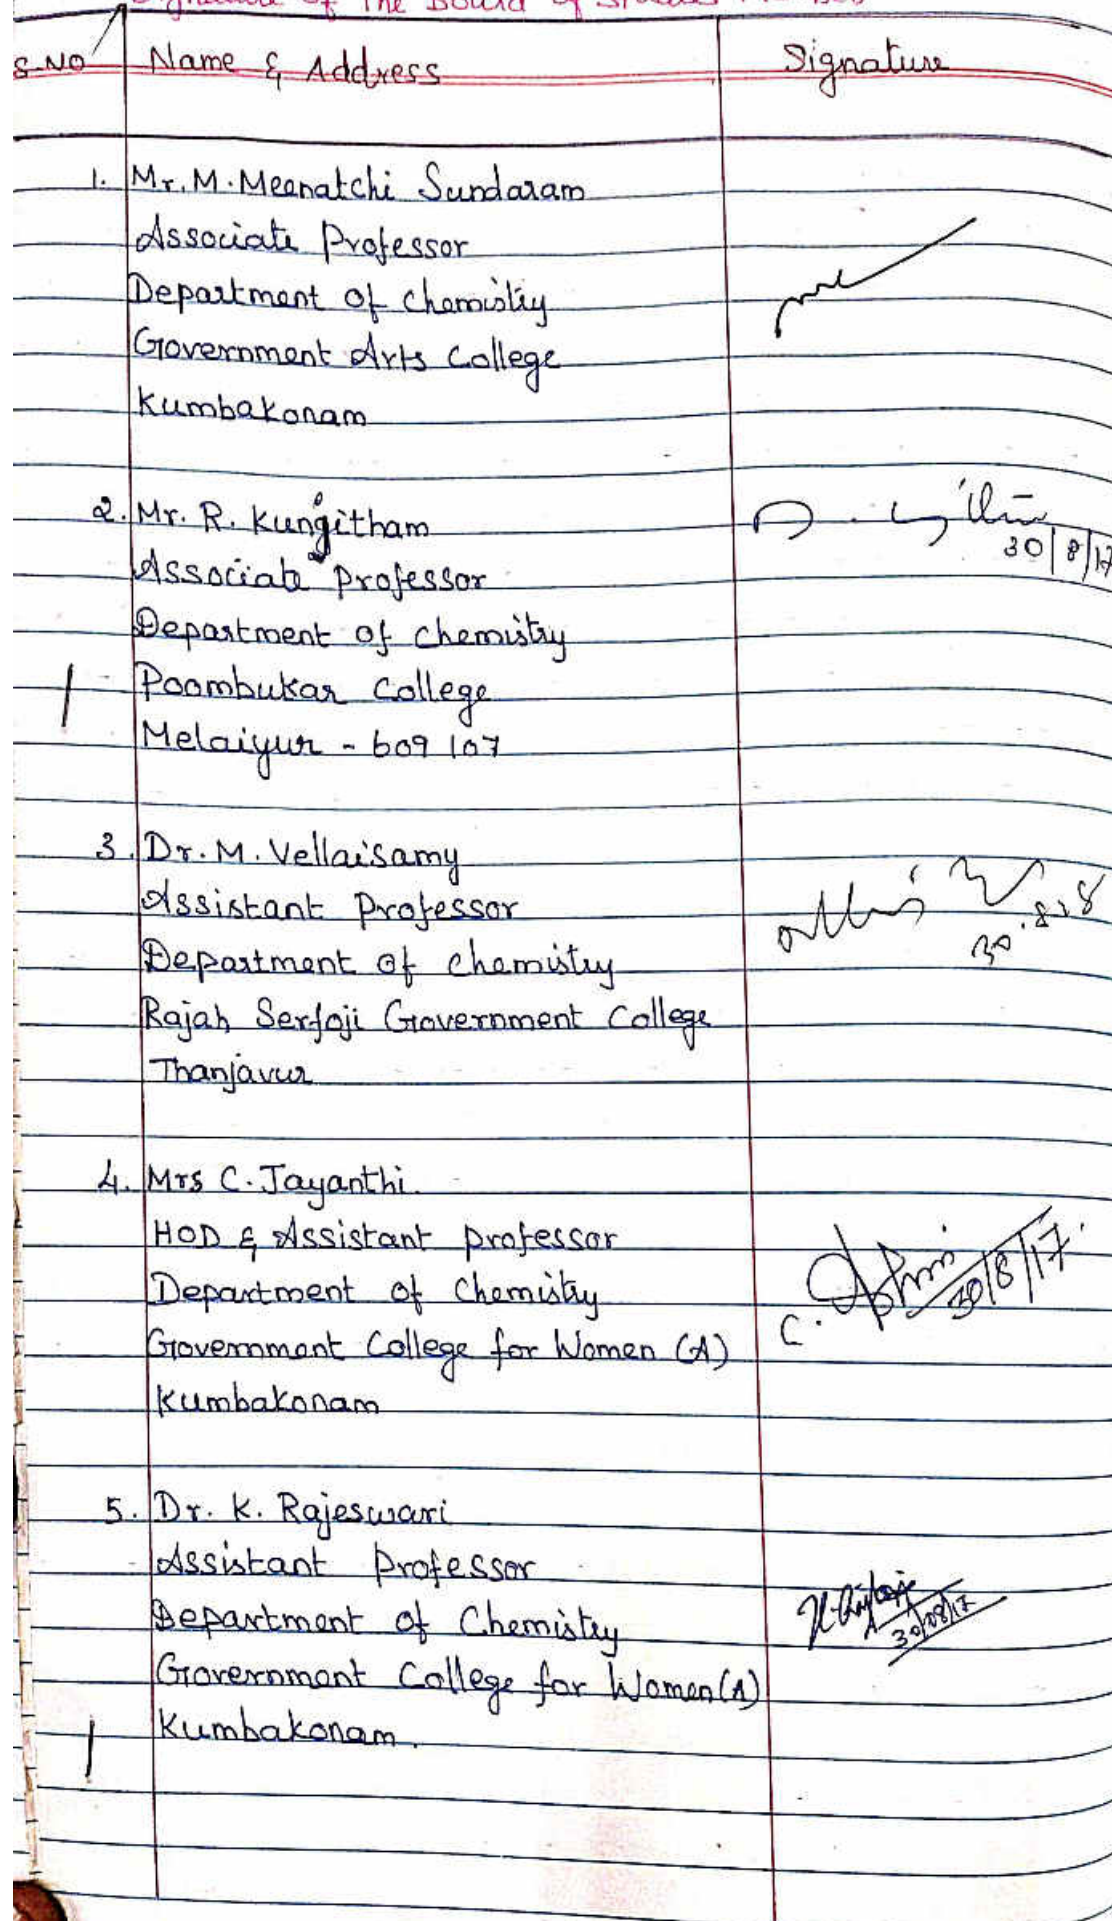 Signature of The Board of Studies
S.NO Name & Address Signature
1. Mr. M. Meenatchi Sundaram
Associate Professor
Department of Chemistry
Government Arts College
Kumbakonam
2. Mr. R. Kungitham
30/8/17
Associate Professor
Department of Chemistry
Poombukar College
Melaiyur - 609 107
3. Dr. M. Vellaisamy
Assistant Professor
Department of Chemistry
Rajah Serfoji Government College
Thanjavur
4. Mrs C. Jayanthi.
HOD & Assistant Professor
30/8/17
Department of Chemistry
C.
Government College for Women (A)
Kumbakonam
5. Dr. K. Rajeswari
Assistant Professor
Department of Chemistry
30/08/17
Government College for Women (A)
Kumbakonam.